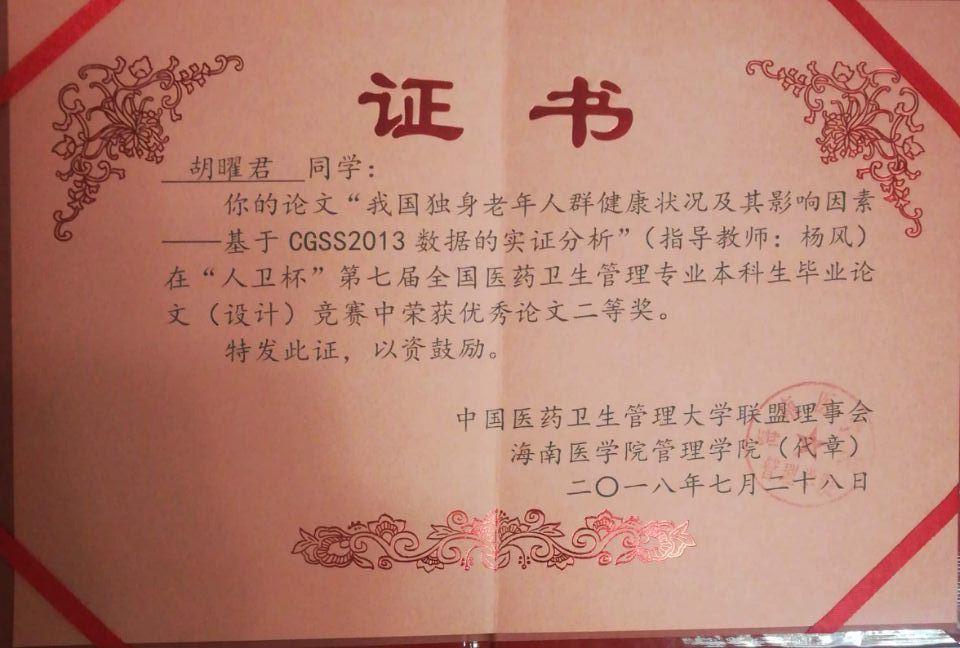 证 书
胡曜君 同学：
你的论文“我国独身老年人群健康状况及其影响因素
——基于 CGSS2013 数据的实证分析”（指导教师：杨风）
在“人卫杯”第七届全国医药卫生管理专业本科生毕业论
文（设计）竞赛中荣获优秀论文二等奖。
特发此证，以资鼓励。
中国医药卫生管理大学联盟理事会
海南医学院管理学院（代章）
二〇一八年七月二十八日